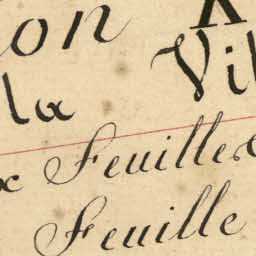 on
la Vil
x Feuilles
Feuille